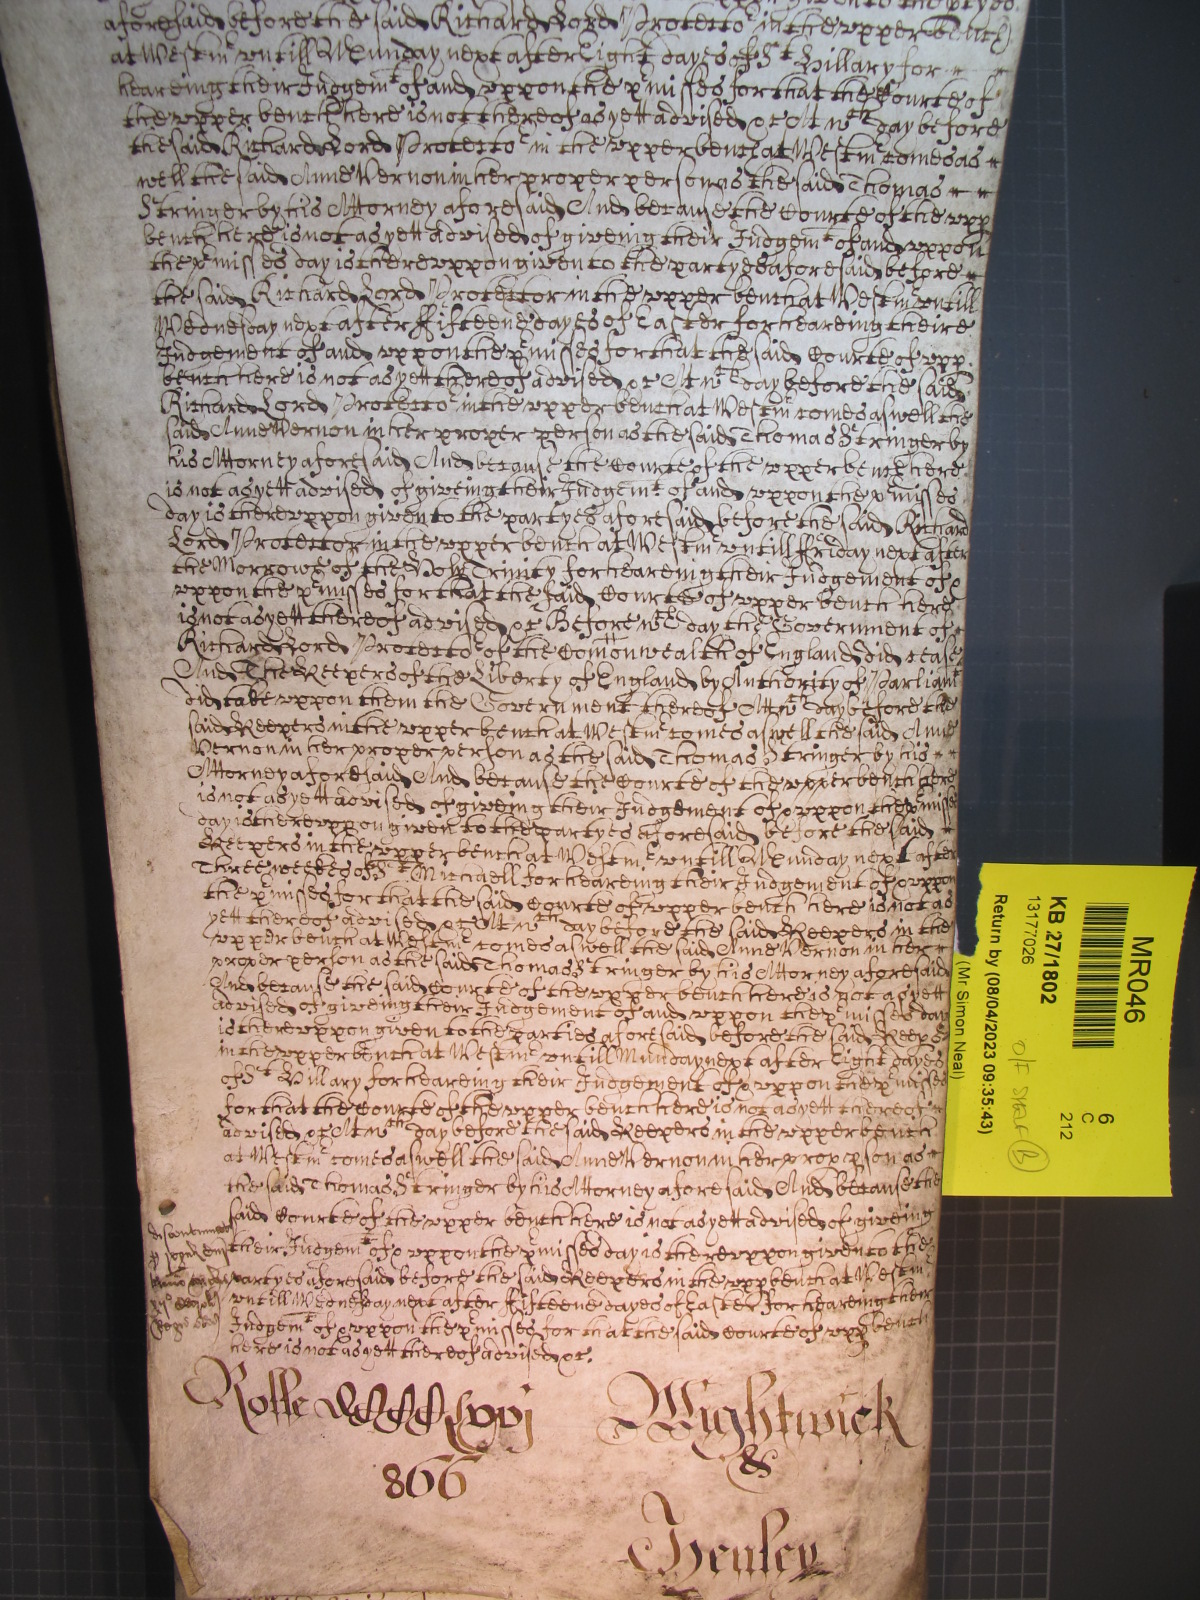 aforesaid before the said Richard Lord Protector in the upper Bench
at Westmr untill Munday next after Eight dayes of St Hillary for
heareing their Judgemt of and uppon the pmisses for that the Courte of
the upper bench here is not thereof as yett advised &c At wch day before
the said Richard Lord Protector in the upper bench at Westmr comes as
well the said Anne Vernon in her proper person as the said Thomas
Stringer by his Attorney aforesaid And because the Courte of the upp
bench here is not as yett advised of giveing their Judgemt of and uppon
the pmisses day is thereuppon given to the partyes aforesaid before
the said Richard Lord Protector in the upper bench at Westmr untill
Wednesday next after ffifteene dayes of Easter for heareing theire
Judgement of and uppon the pmisses for that the said Courte of upp
bench here is not as yett thereof advised &c At wch day before the said
Richard Lord Protector in the upper bench at Westmr comes aswell the
said Anne Vernon in her proper person as the said Thomas Stringer by
his Attorney aforesaid And because the Courte of the upper bench here
is not as yett advised of giveing their Judgemt of and uppon the pmisses
day is thereuppon given to the partyes aforesaid before the said Richard
Lord Protector in the upper bench at Westmr untill ffriday next after
the Morrowe of the Holy Trinity for heareing their Judgement of &
uppon the pmisses for that the said Courte of upper bench here
is not as yett thereof advised &c Before wch day the Government of
Richard Lord Protector of the Comonwealth of England did cease
And The Keepers of the Liberty of England by Authority of Parliamt
did take uppon them the Government thereof At wch day before the
said Keepers in the upper bench at Westmr comes aswell the said Anne
Vernon in her proper person as the said Thomas Stringer by his
Attorney aforesaid And because the Courte of the upper bench here
is not as yett advised of giveing their Judgement of & uppon the pmisses
day is thereuppon given to the partyes aforesaid before the said
Keepers in the upper bench at Westmr untill Munday next after
Three weekes of St Michaell for heareing their Judgement of & uppon
the pmisses for that the said Courte of upper bench here is not as
yett thereof advised &c At wch day before the said Keepers in the
upper bench at Westmr comes aswell the said Anne Vernon in her
proper person as the said Thomas Stringer by his Attorney aforesaid
And because the said Courte of the upper bench here is not as yett
advised of giveing their Judgement of and uppon the pmisses day
is thereuppon given to the parties aforesaid before the said Keeps
in the upper bench at Westmr untill Munday next after Eight dayes
of St Hillary for heareing their Judgement of & uppon the pmisses
for that the Courte of the upper bench here is not as yett thereof
advised &c At wch day before the said Keepers in the upper bench
at Westmr comes aswell the said Anne Vernon in her prop pson as
the said Thomas Stringer by his Attorney aforesaid And because the
said Courte of the upper bench here is not as yett advised of giveing
their Judgemt of & uppon the pmisses day is thereuppon given to the
partyes aforesaid before the said Keepers in the upp bench at Westmr
untill Wednesday next after ffifteene dayes of Easter for heareing their
Judgemt of & uppon the pmisses for that the said Courte of upp bench
here is not as yett thereof advised &c.
Rolle DCCCLxvj
866
Wightwick
&
Henley
MR046
6
C
212
KB 27/1802
13177026
O/F Shelf (B)
Return by (08/04/2023 09:35:43)
(Mr Simon Neal)